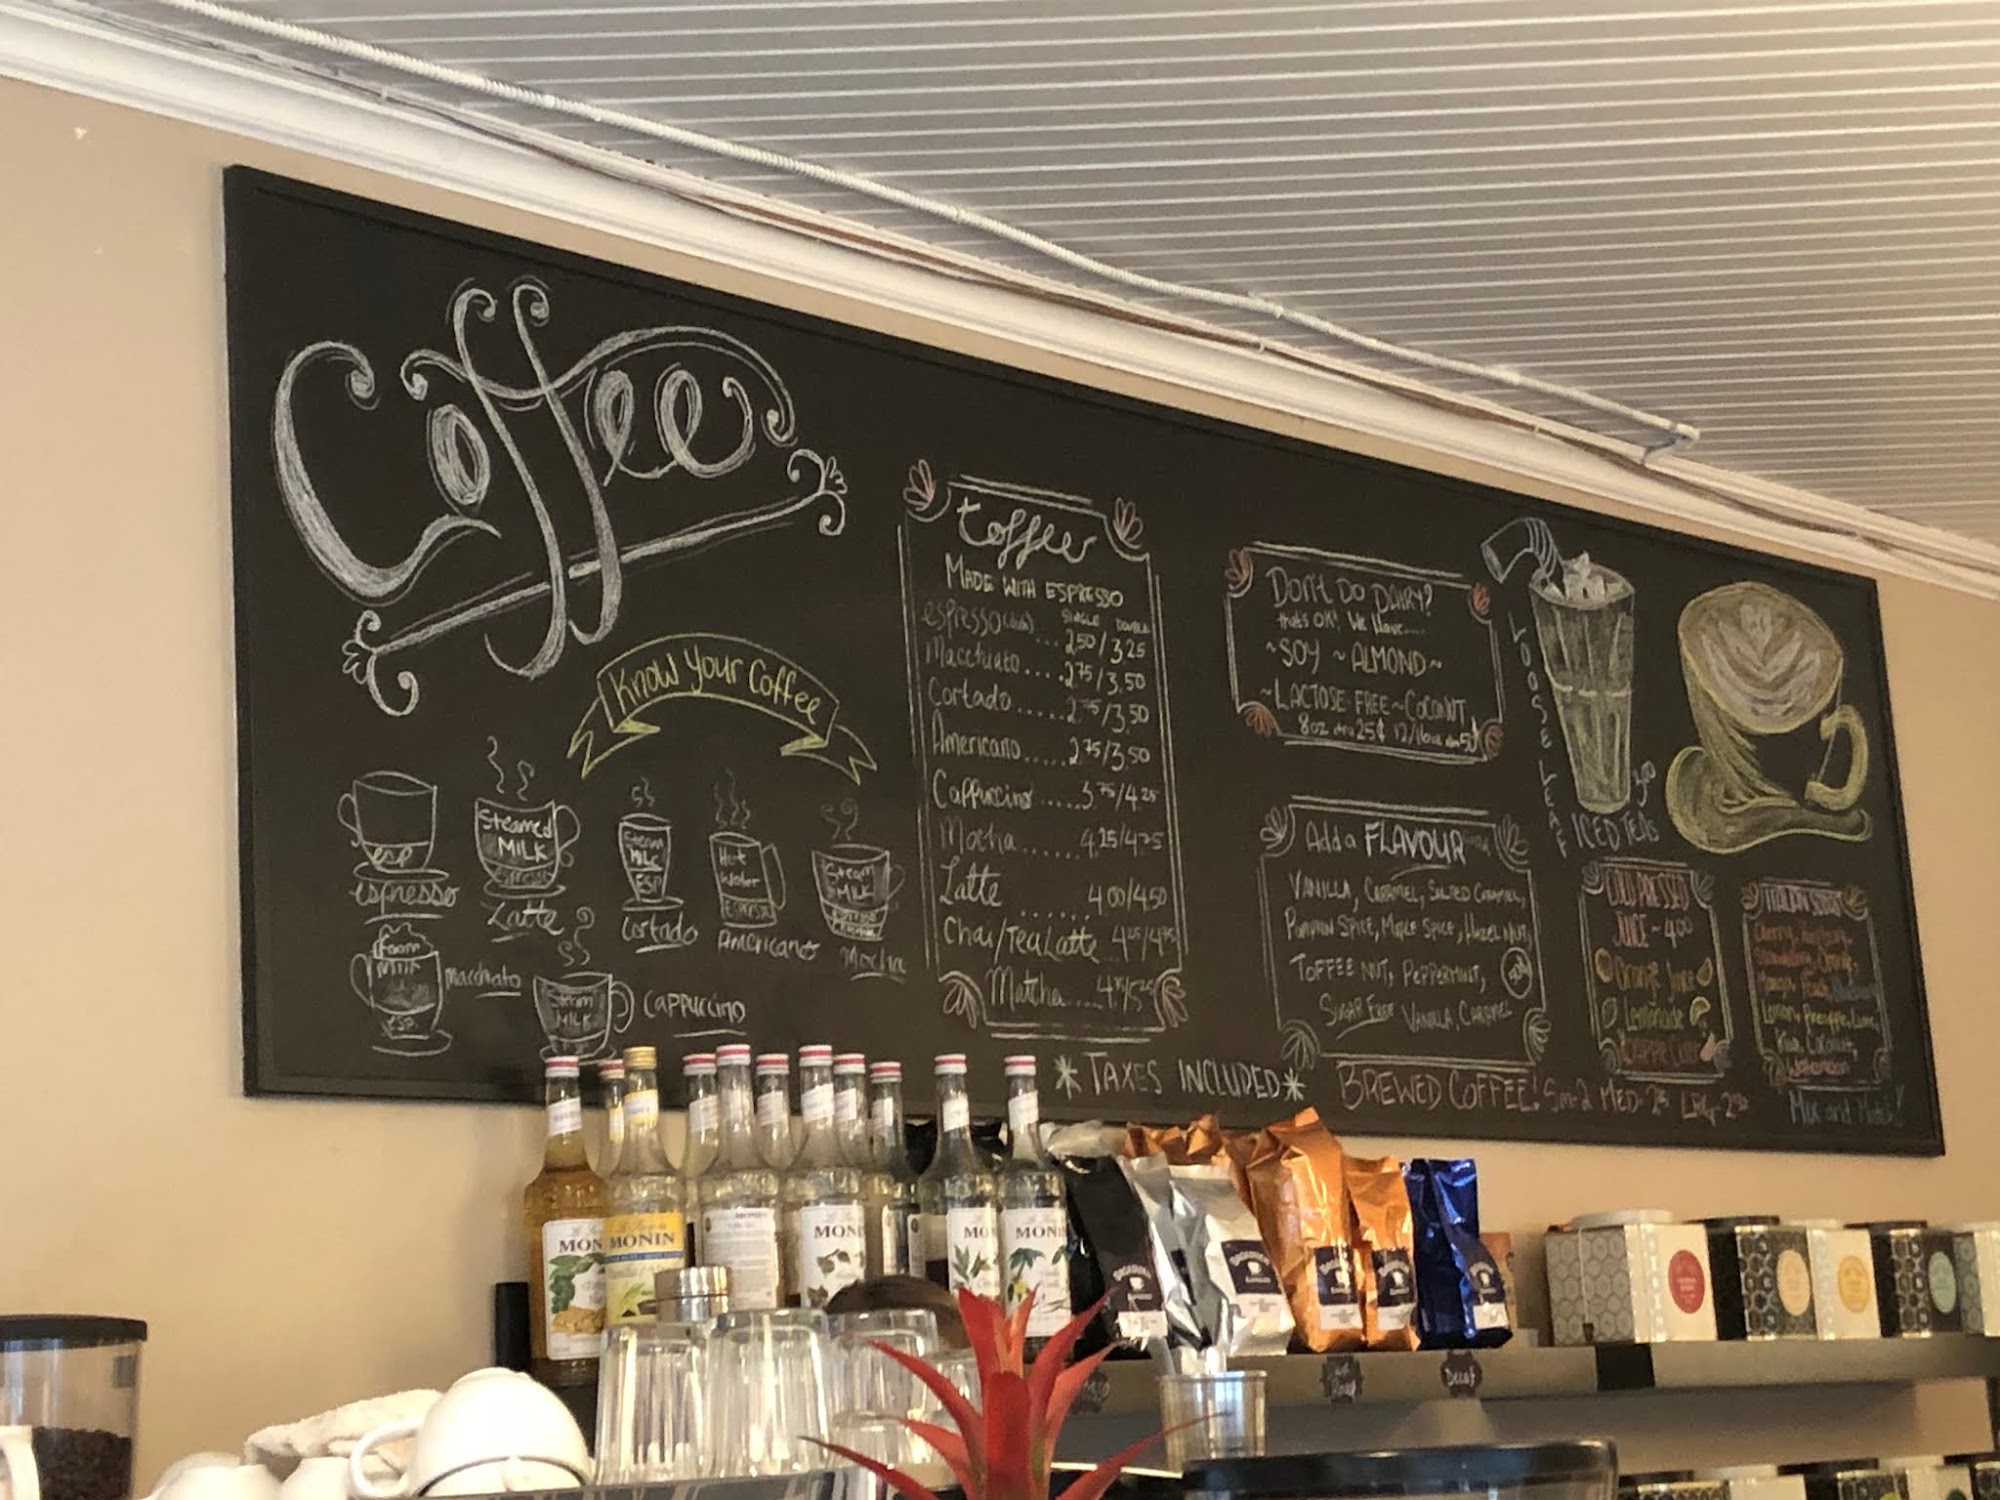 Coffee
Know Your Coffee
esp
espresso
Steamed
MILK
espresso
Latte
Steam
Milk
ESP
Cortado
Hot
Water
ESPRESSO
Americano
Steam
MILK
Mocha
foam
MILK
esp
Macchiato
Steam
MILK
Cappuccino
toffee
MADE WITH ESPRESSO
SINGLE DOUBLE
espresso .... 2.50/3.25
Macchiato .... 2.75/3.50
Cortado ..... 2.75/3.50
Americano ..... 2.75/3.50
Cappuccino ..... 3.75/4.25
Mocha ...... 4.25/4.75
Latte ...... 4.00/4.50
Chai/Tea Latte
Matcha ....
* TAXES INCLUDED *
DON'T DO DAIRY?
thats OK! We Have....
~SOY ~ALMOND~
~LACTOSE FREE~COCONUT
LOOSE LEAF
ICED TEAS
Add a FLAVOUR
VANILLA, CARAMEL, SALTED CARAMEL,
PUMPKIN SPICE, MAPLE SPICE, HAZEL NUT,
TOFFEE NUT, PEPPERMINT,
SUGAR FREE VANILLA, CARAMEL
COLD PRESSED
JUICE ~ 4.00
Orange Juice
Lemonade
Lemon, Pineapple, Lime,
Kiwi, Coconut,
Watermelon
Mix and Match!
BREWED COFFEE! Sm-2 MED-
MONIN
MONIN
Decaf